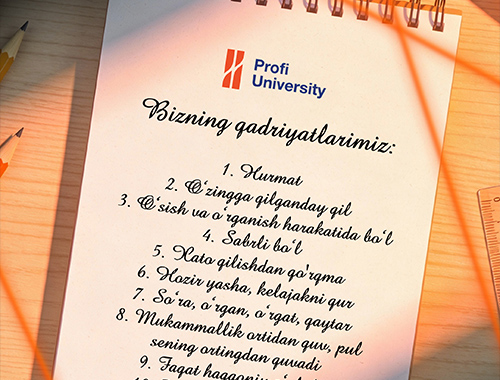 Profi
University
Bizning qadriyatlarimiz:
1. Hurmat
2. O'zingga qilganday qil
3. O'sish va o'rganish harakatida bo'l
4. Sabrli bo'l
5. Xato qilishdan qo'rqma
6. Hozir yasha, kelajakni qur
7. So'ra, o'rgan, o'rgat, qaytar
8. Mukammallik ortidan quv, pul
sening ortingdan quvadi
9. Faqat